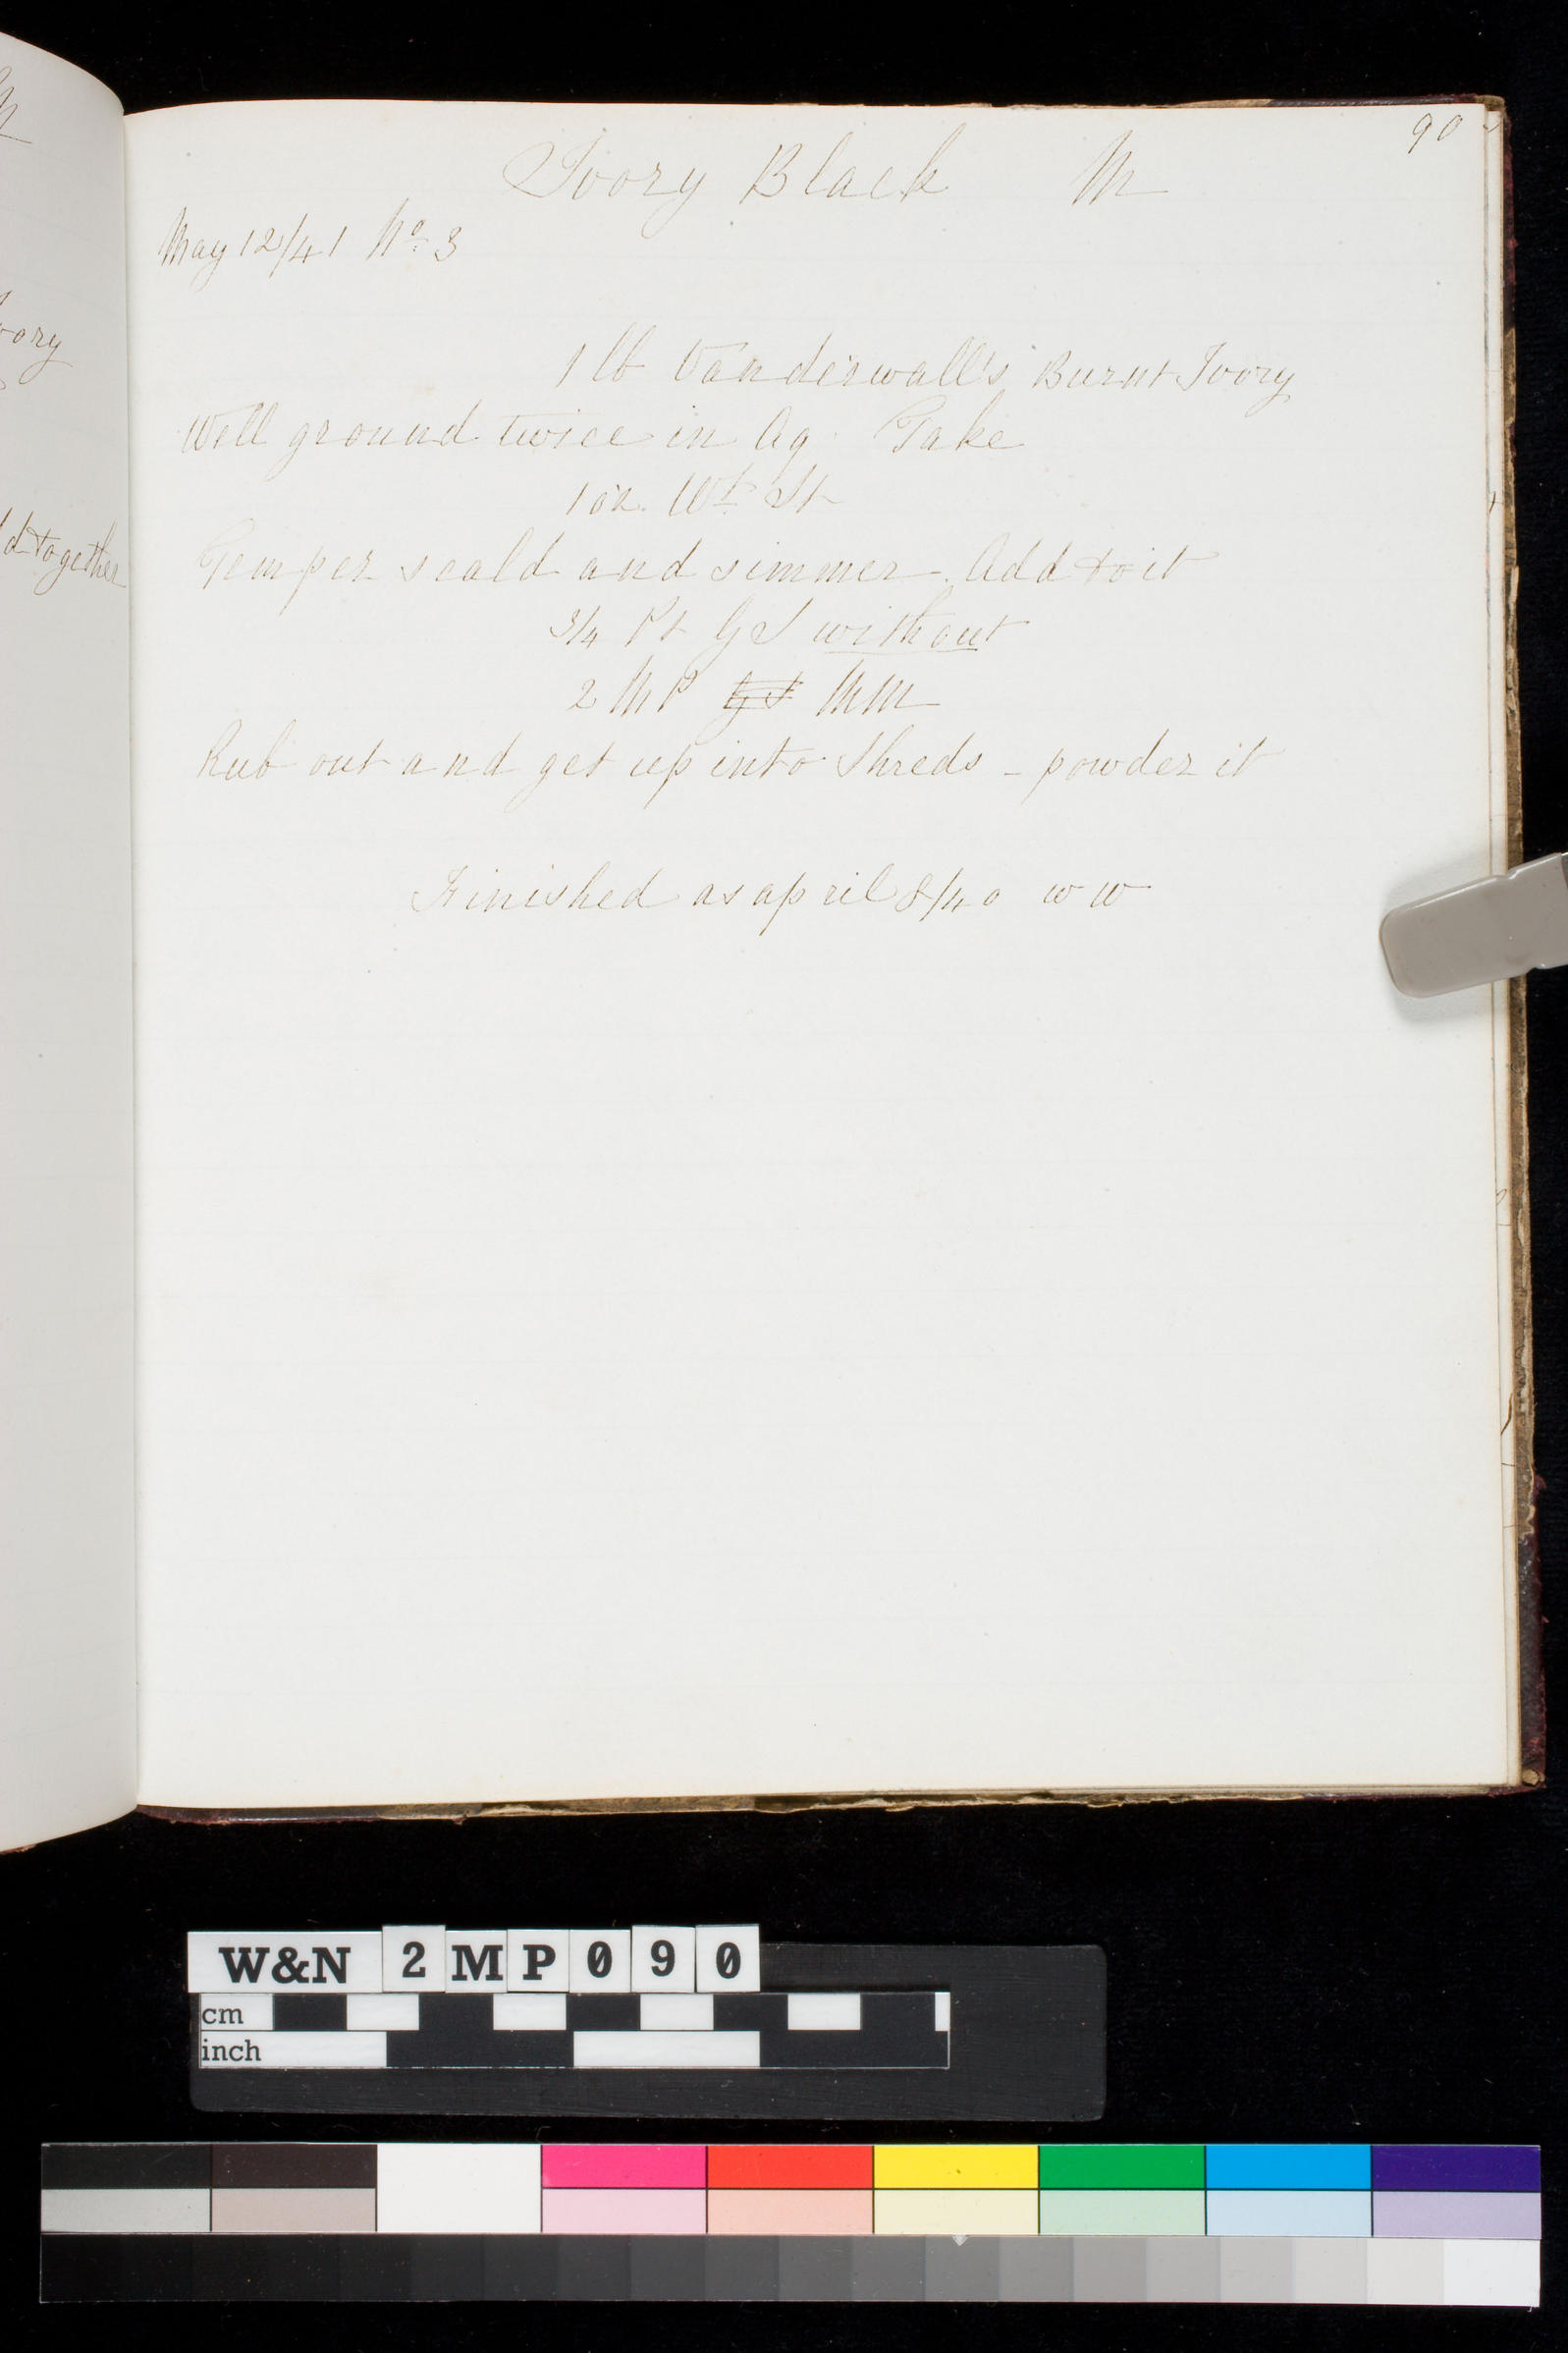 90
Ivory Black M
May 12/41 No. 3
1 lb Vanderwall's Burnt Ivory
Well ground twice in Aq Take
1 oz. Wt. St
Temper scald and simmer. Add to it
3/4 Pt G S without
2 M P G S M M
Rub out and get up into Shreds - powder it
Finished as april 8/40 w w
ory
d together
W&N 2MP090
cm
inch